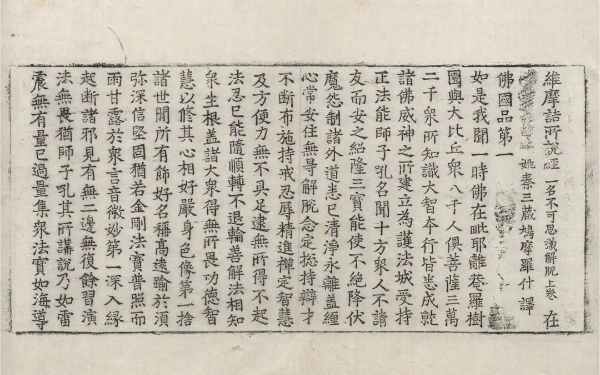 維摩詰所說經 一名不可思議解脫上卷 在
姚秦三藏鳩摩羅什 譯
佛國品第一
如是我聞一時佛在毗耶離菴羅樹
園與大比丘衆八千人俱菩薩三萬
二千衆所知識大智本行皆悉成就
諸佛威神之所建立為護法城受持
正法能師子吼名聞十方衆人不請
友而安之紹隆三寶能使不絕降伏
魔怨制諸外道悉已清淨永離蓋纏
心常安住無㝵解脫念定揔持辯才
不斷布施持戒忍辱精進禪定智慧
及方便力無不具足逮無所得不起
法忍已能隨順轉不退輪善解法相知
衆生根盖諸大衆得無所畏功德智
慧以修其心相好嚴身色像第一捨
諸世間所有飾好名稱高遠踰於須
弥深信堅固猶若金剛法寶普照而
雨甘露於衆言音微妙第一深入緣
起斷諸邪見有無二邊無復餘習演
法無畏猶師子吼其所講說乃如雷
震無有量已過量集衆法寶如海導